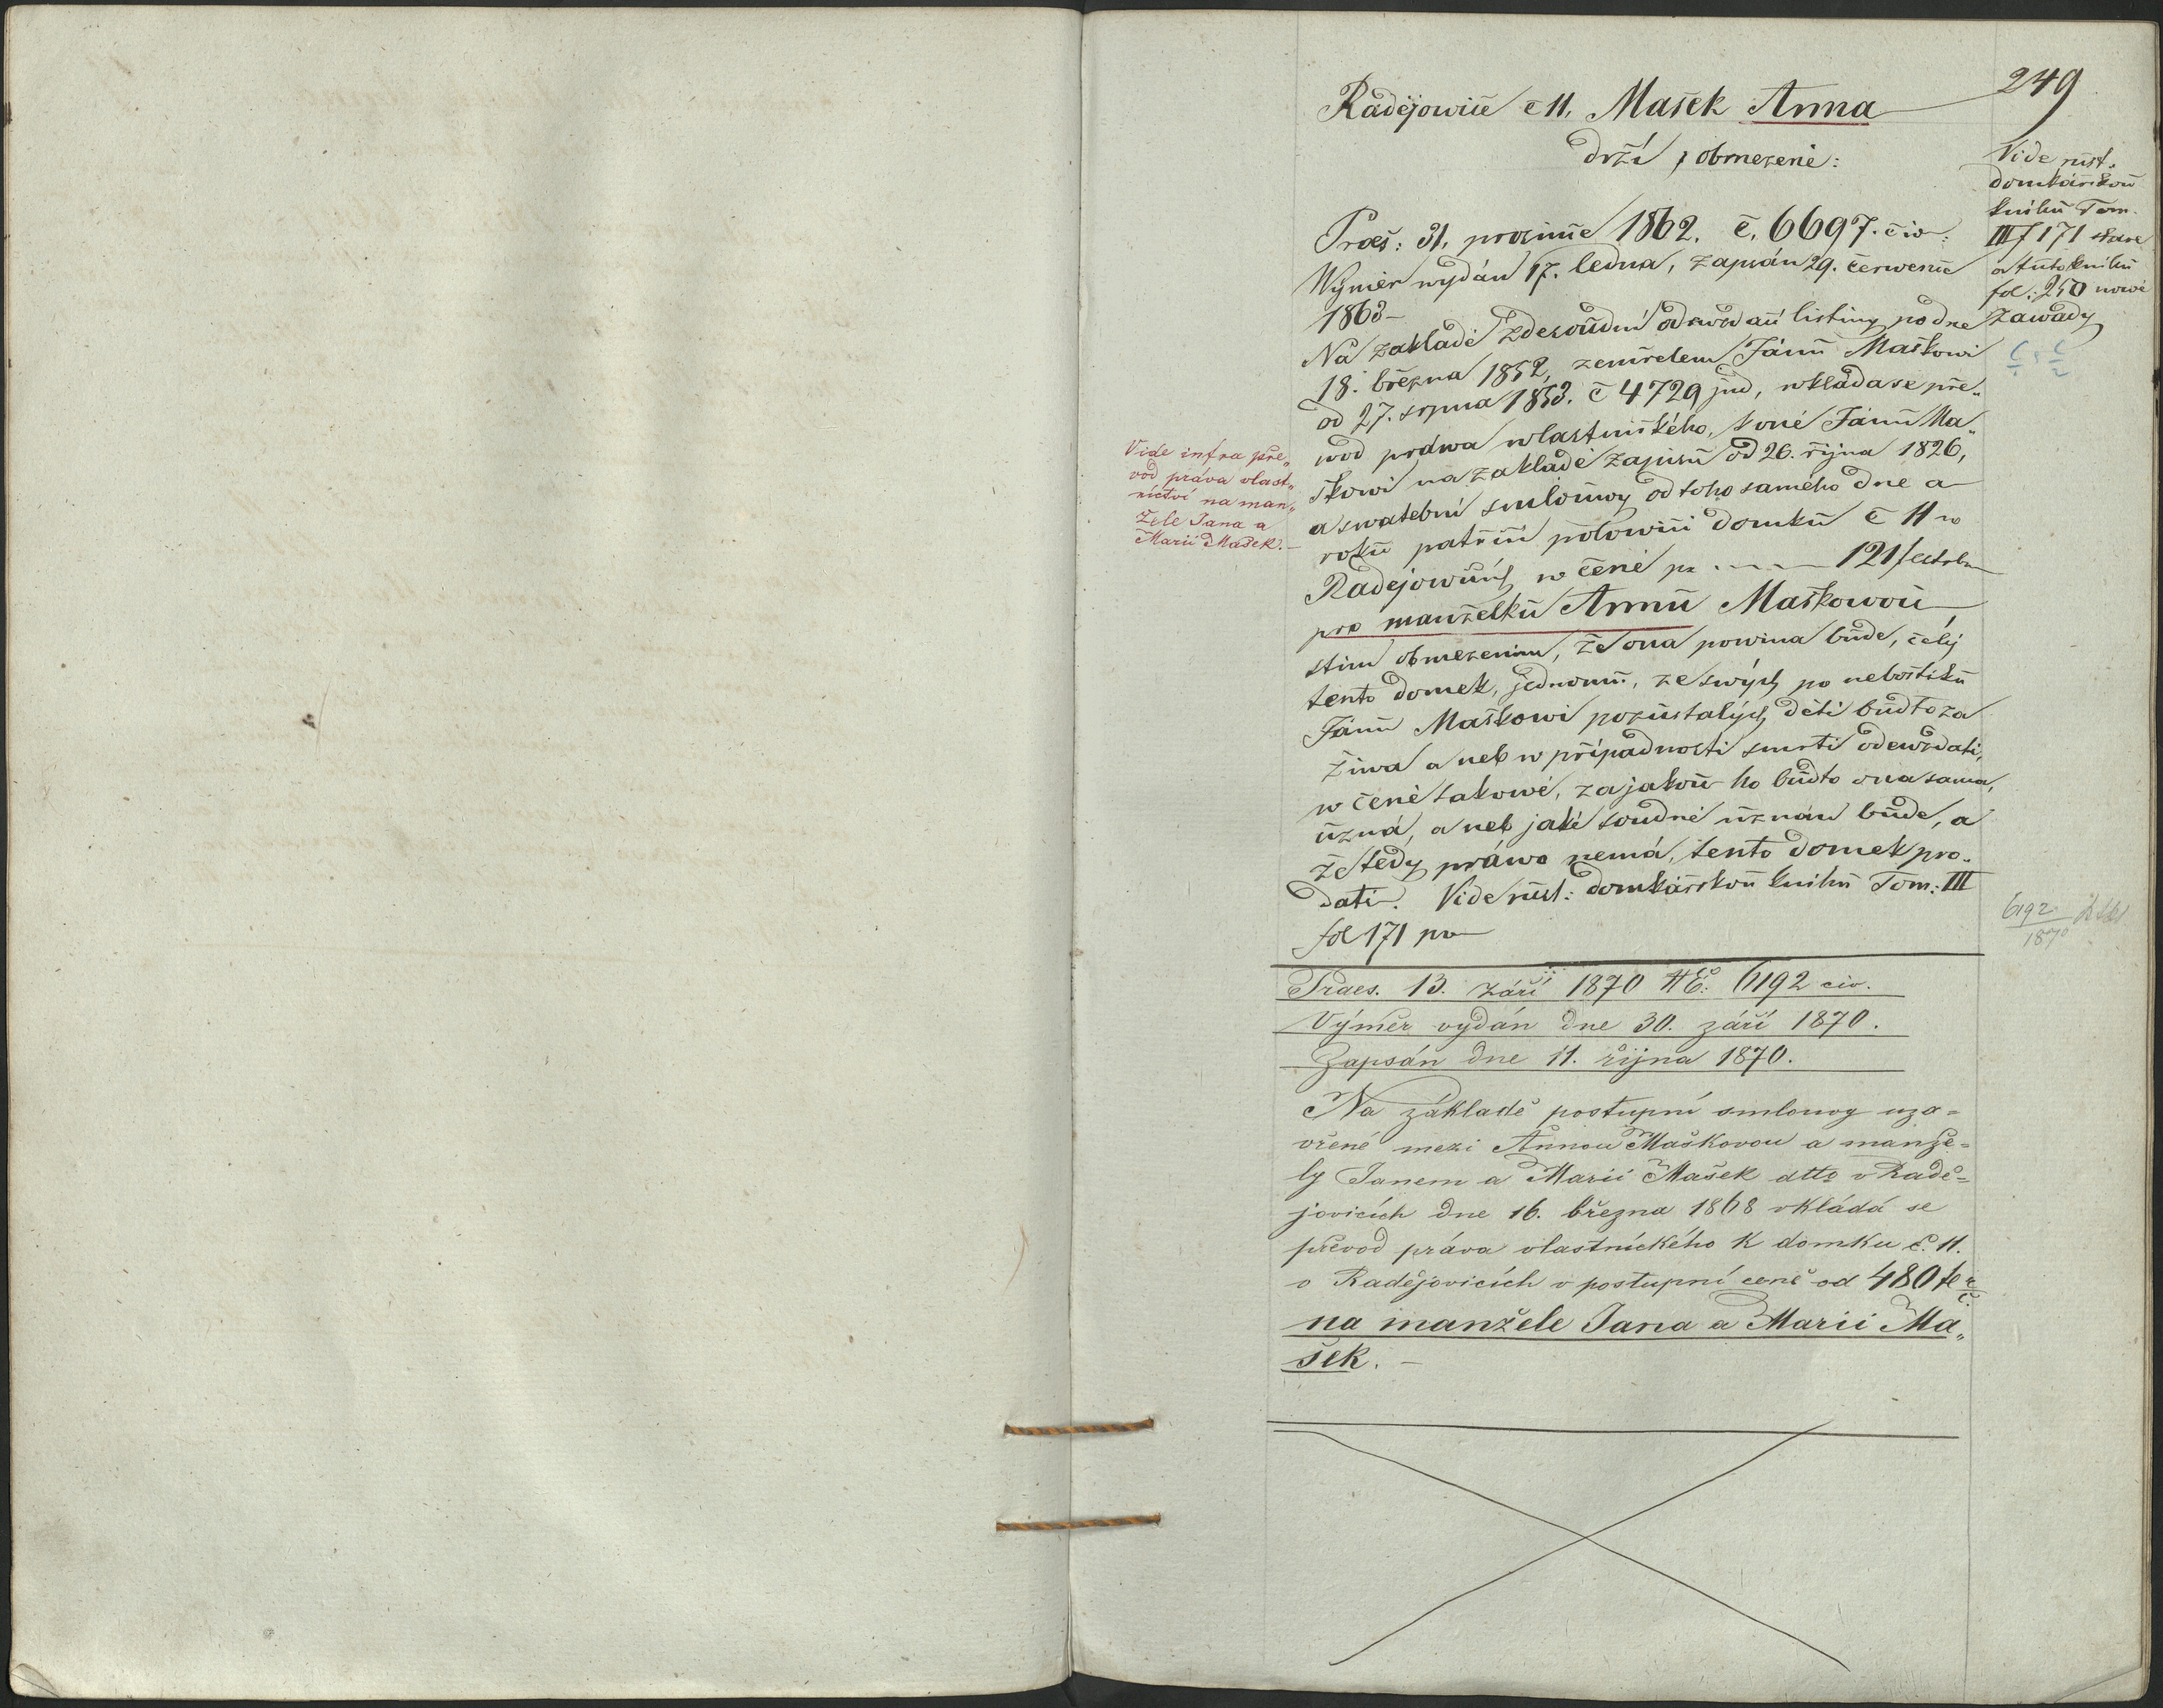 249
Radějowice č 11, Mašek Anna
drží, obmezeně:
Praes: 31. prosince 1862. č. 6697. civ:
Wýměr wydán 17. ledna, zapsán 29. červenc
1863 –
Na základě zdesoudní odewzdací listiny po dne
18. března 1852, zemřelem Jánu Maškowi
od 27. srpna 1853. č 4729 jud, wklada se pře„
wod práwa wlastnického, k oné Jánu Ma„
škowi na základě zapisu od 26. října 1826,
a swatební smlouwy od toho samého dne a
roku patřící polowici domku č 11 w
Radejowicých w ceně pr 121 f
pro manželku Annu Maškowou
stim obmezenim, že ona powina bude, celý
tento domek, jednomu, ze swých po nebožtiku
Jánu Maškowi pozustalých dětí budto za
žiwa a neb w případnosti smrti odewzdati,
w ceně takowé, za jakou ho budto ona sama,
uzná, a neb jaké soudně uznán bude, a
že tedy práwo nemá, tento domek pro„
dati. Vide rust: domkářskou knihu Tom: III
fol 171 pv
Vide rust.
domkářskou
knihu Tom.
III f 171 stare
a tuto knihu
fol: 250 nowé
zawady
Vide infra pře„
vod práva vlast„
nictví na man„
žele Jana a
Marii Mašek. –
6192
1870
Praes. 13. září 1870 № E: 6192 civ.
Výměr vydán dne 30. září 1870.
Zapsán dne 11. října 1870.
Na základě postupní smlouvy uza=
vřené mezi Annou Maškovou a manže=
ly Janem a Marií Mašek dtto v Radě=
jovicích dne 16. března 1868 vkládá se
převod práva vlastnického k domku č. 11.
v Radějovicích v postupní ceně od 480 fr č.
na manžele Jana a Marii Ma„
šek. –